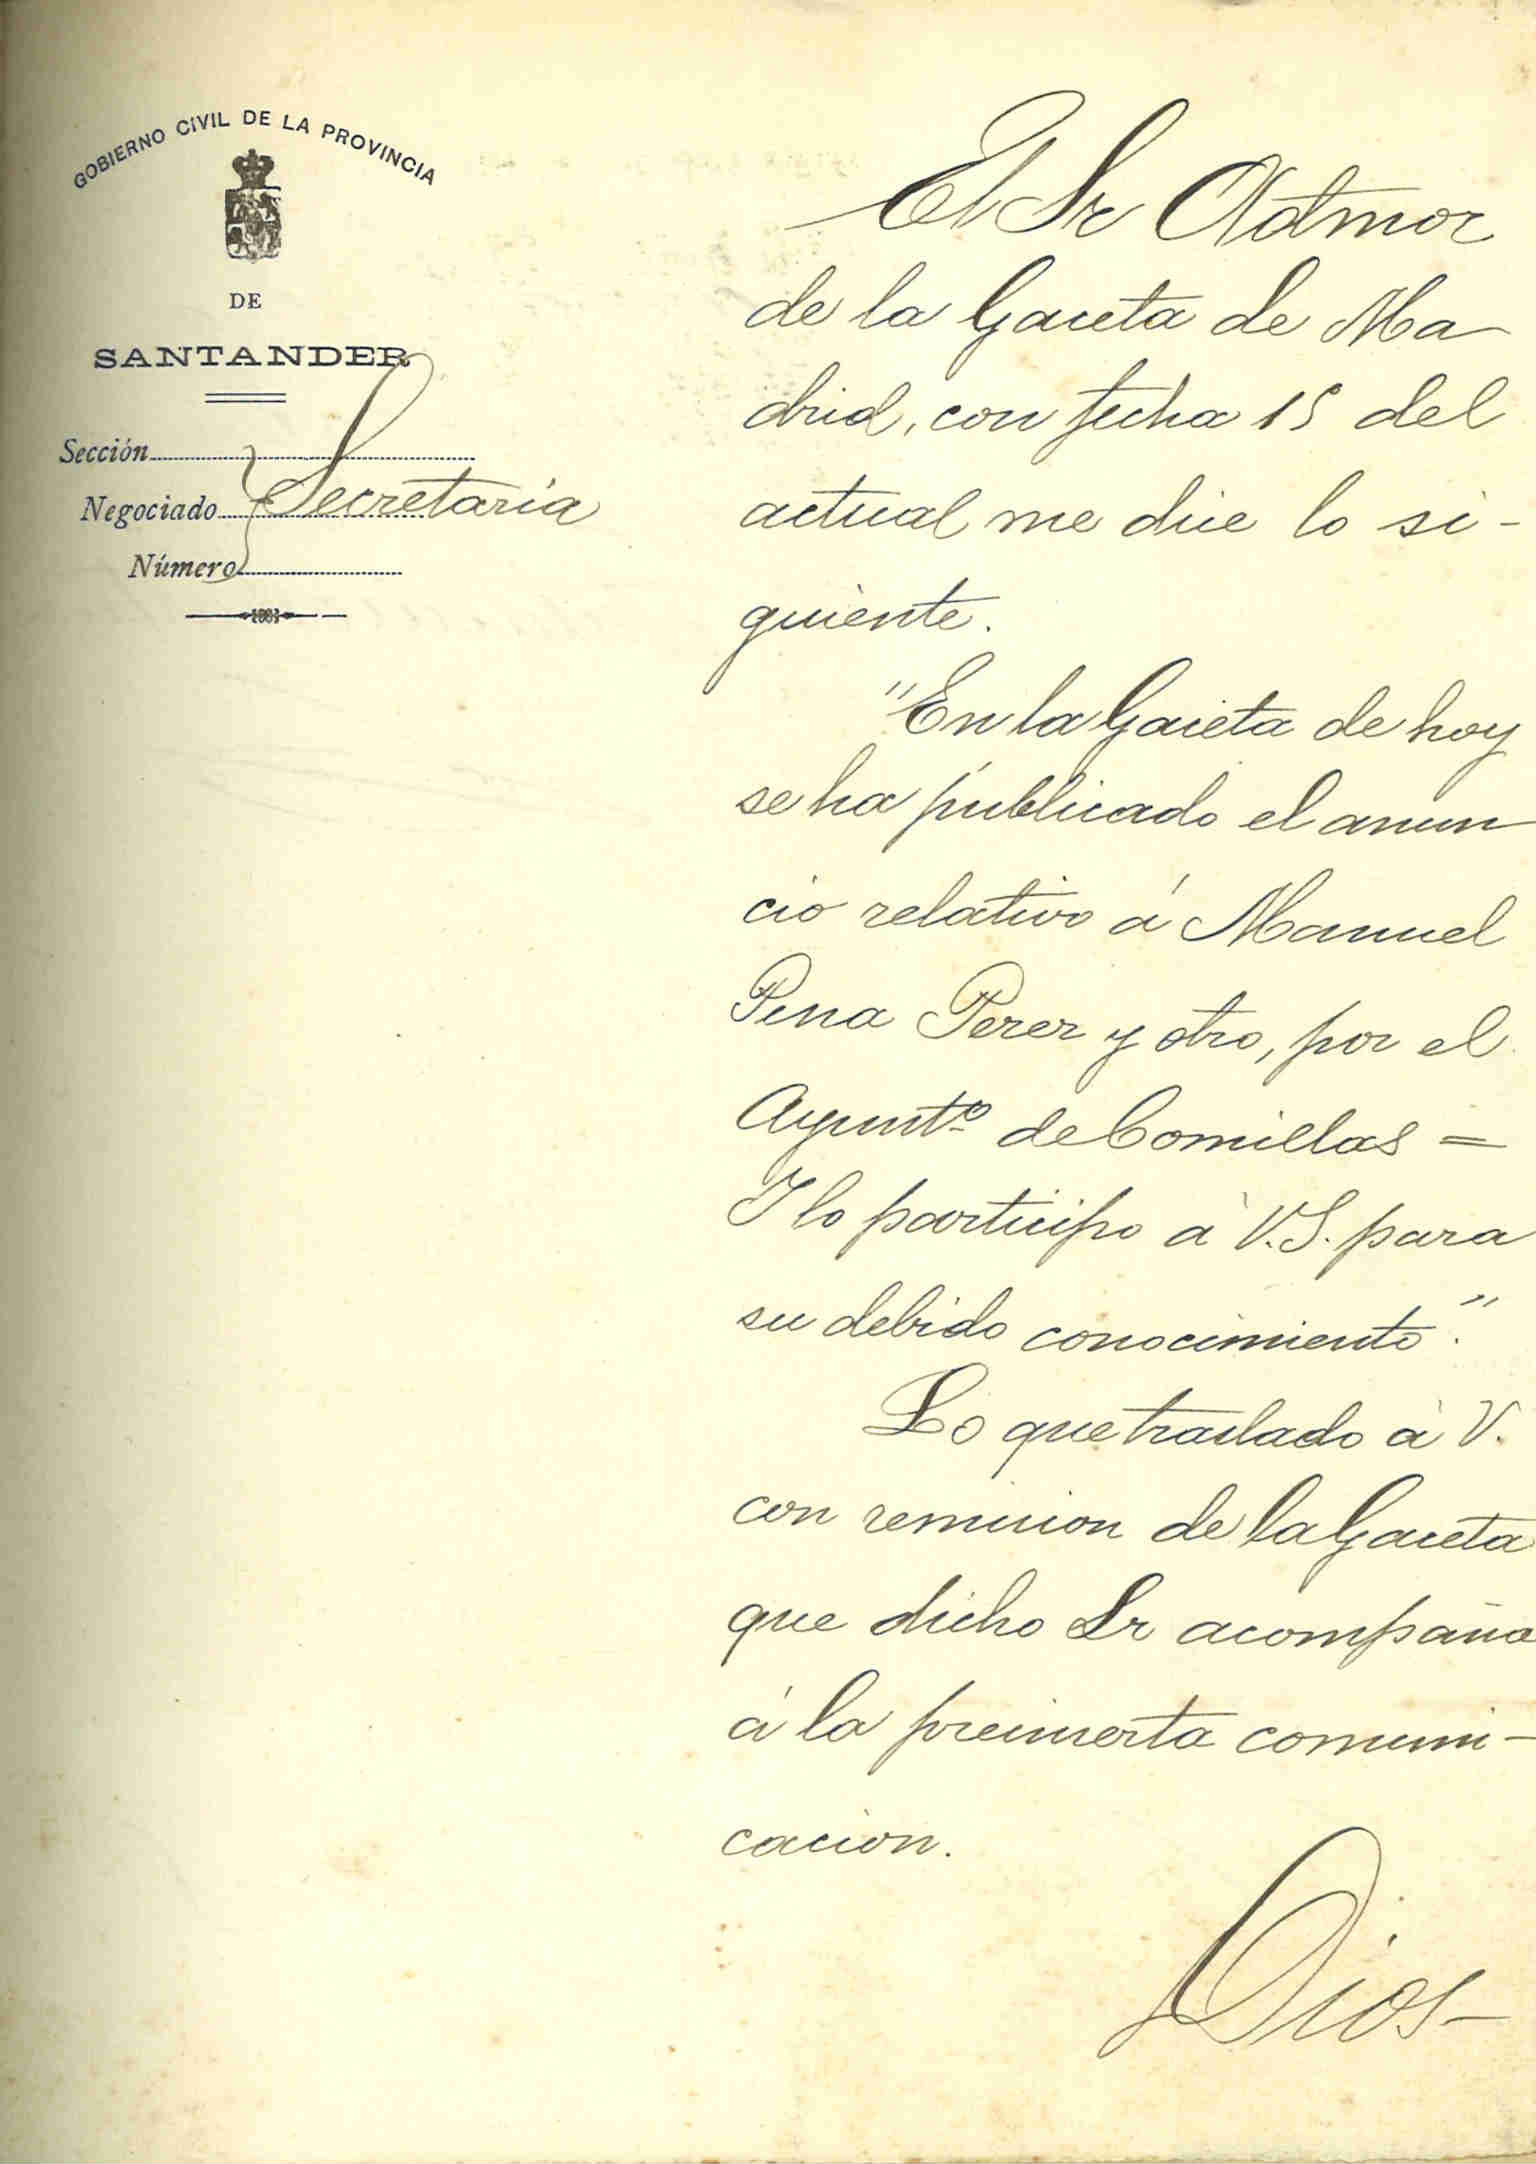 GOBIERNO CIVIL DE LA PROVINCIA
DE
SANTANDER
Sección
Negociado Secretaría
Número
El Sr Admor
de la Gaceta de Ma
drid, con fecha 15 del
actual me dice lo si-
guiente.
"En la Gaceta de hoy
se ha publicado el anun
cio relativo á Manuel
Pena Perez y otro, por el
Ayuntº de Comillas =
Y lo participo á V.S. para
su debido conocimiento".
Lo que traslado á V.
con remision de la Gaceta
que dicho Sr acompaña
á la preinserta comuni-
cacion.
Dios-